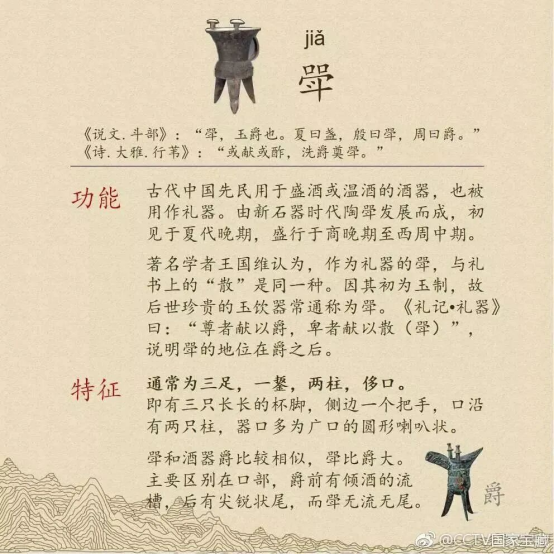 jiǎ
斝
《说文.斗部》：“斝，玉爵也。夏曰盏，殷曰斝，周曰爵。”
《诗.大雅.行苇》：“或献或酢，洗爵奠斝。”
功能
古代中国先民用于盛酒或温酒的酒器，也被
用作礼器。由新石器时代陶斝发展而成，初
见于夏代晚期，盛行于商晚期至西周中期。
著名学者王国维认为，作为礼器的斝，与礼
书上的“散”是同一种。因其初为玉制，故
后世珍贵的玉饮器常通称为斝。《礼记•礼器》
曰：“尊者献以爵，卑者献以散（斝）”，
说明斝的地位在爵之后。
特征
通常为三足，一鋬，两柱，侈口。
即有三只长长的杯脚，侧边一个把手，口沿
有两只柱，器口多为广口的圆形喇叭状。
斝和酒器爵比较相似，斝比爵大。
主要区别在口部，爵前有倾酒的流
槽，后有尖锐状尾，而斝无流无尾。
爵
@CCTV国家宝藏